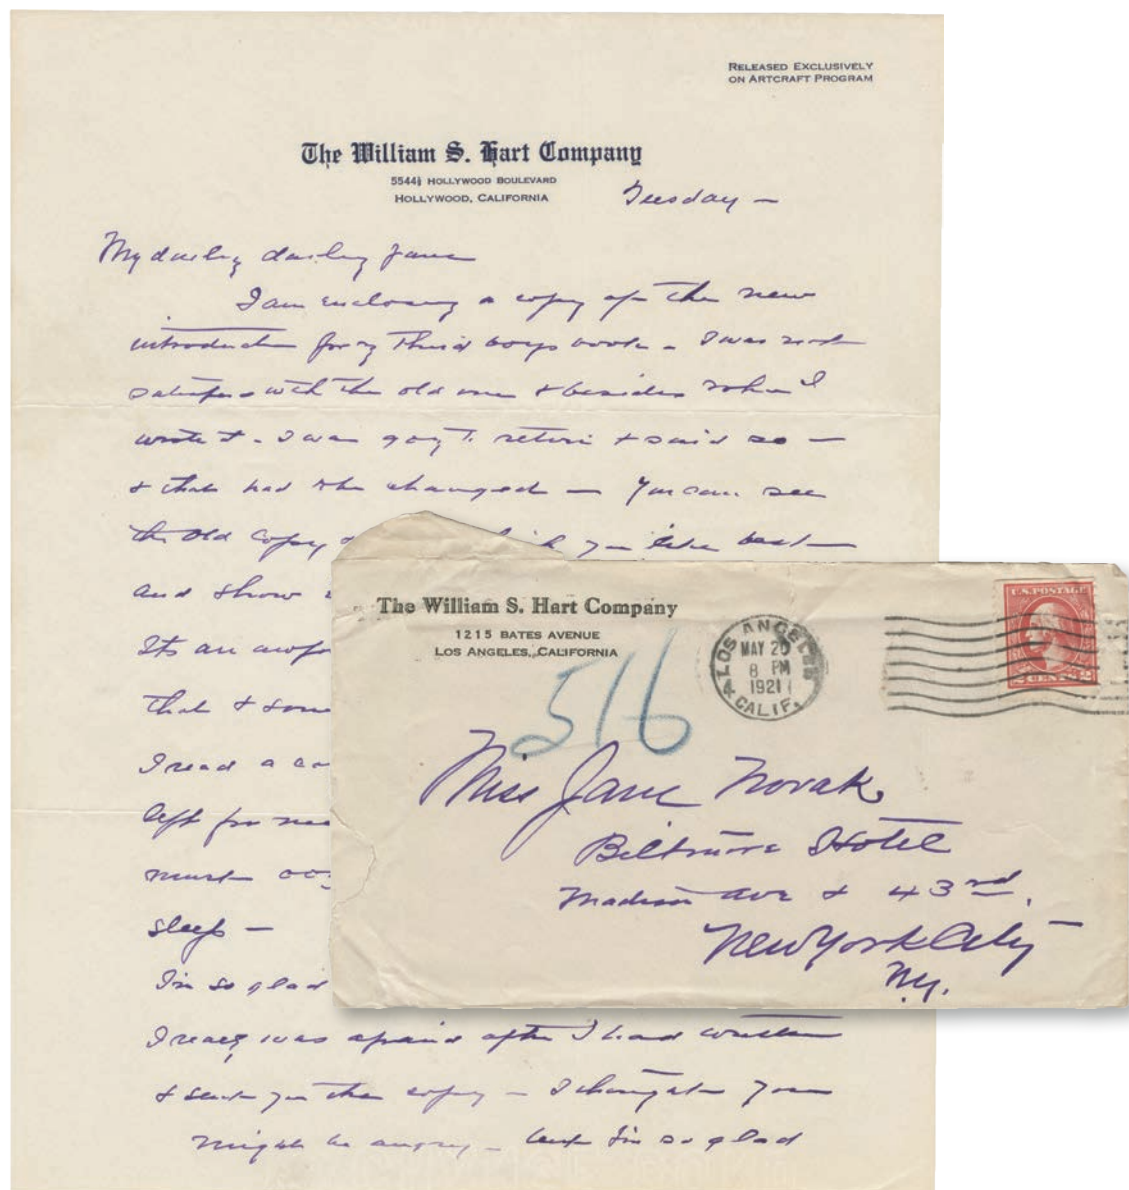 RELEASED EXCLUSIVELY
ON ARTCRAFT PROGRAM
The William S. Hart Company
5544½ HOLLYWOOD BOULEVARD
HOLLYWOOD, CALIFORNIA
Tuesday —
My darling darling Jane
I am enclosing a copy of the new
introduction for my third boys book – I was not
satisfied with the old one & besides when I
wrote it – I was going to retire & said so —
& that had to be changed — You can see
the old copy you like best —
and show
Its an awful
that & some
I read a
left for
must
sleep —
I'm so glad
I really was afraid after I had written
& sent you the copy — I thought you
might be angry – but I'm so glad
The William S. Hart Company
1215 BATES AVENUE
LOS ANGELES, CALIFORNIA
516
LOS ANGELES
MAY 20
8 PM
1921
CALIF.
U.S. POSTAGE
2 CENTS 2
Miss Jane Novak
Biltmore Hotel
Madison Ave & 43rd.
New York City
N.Y.